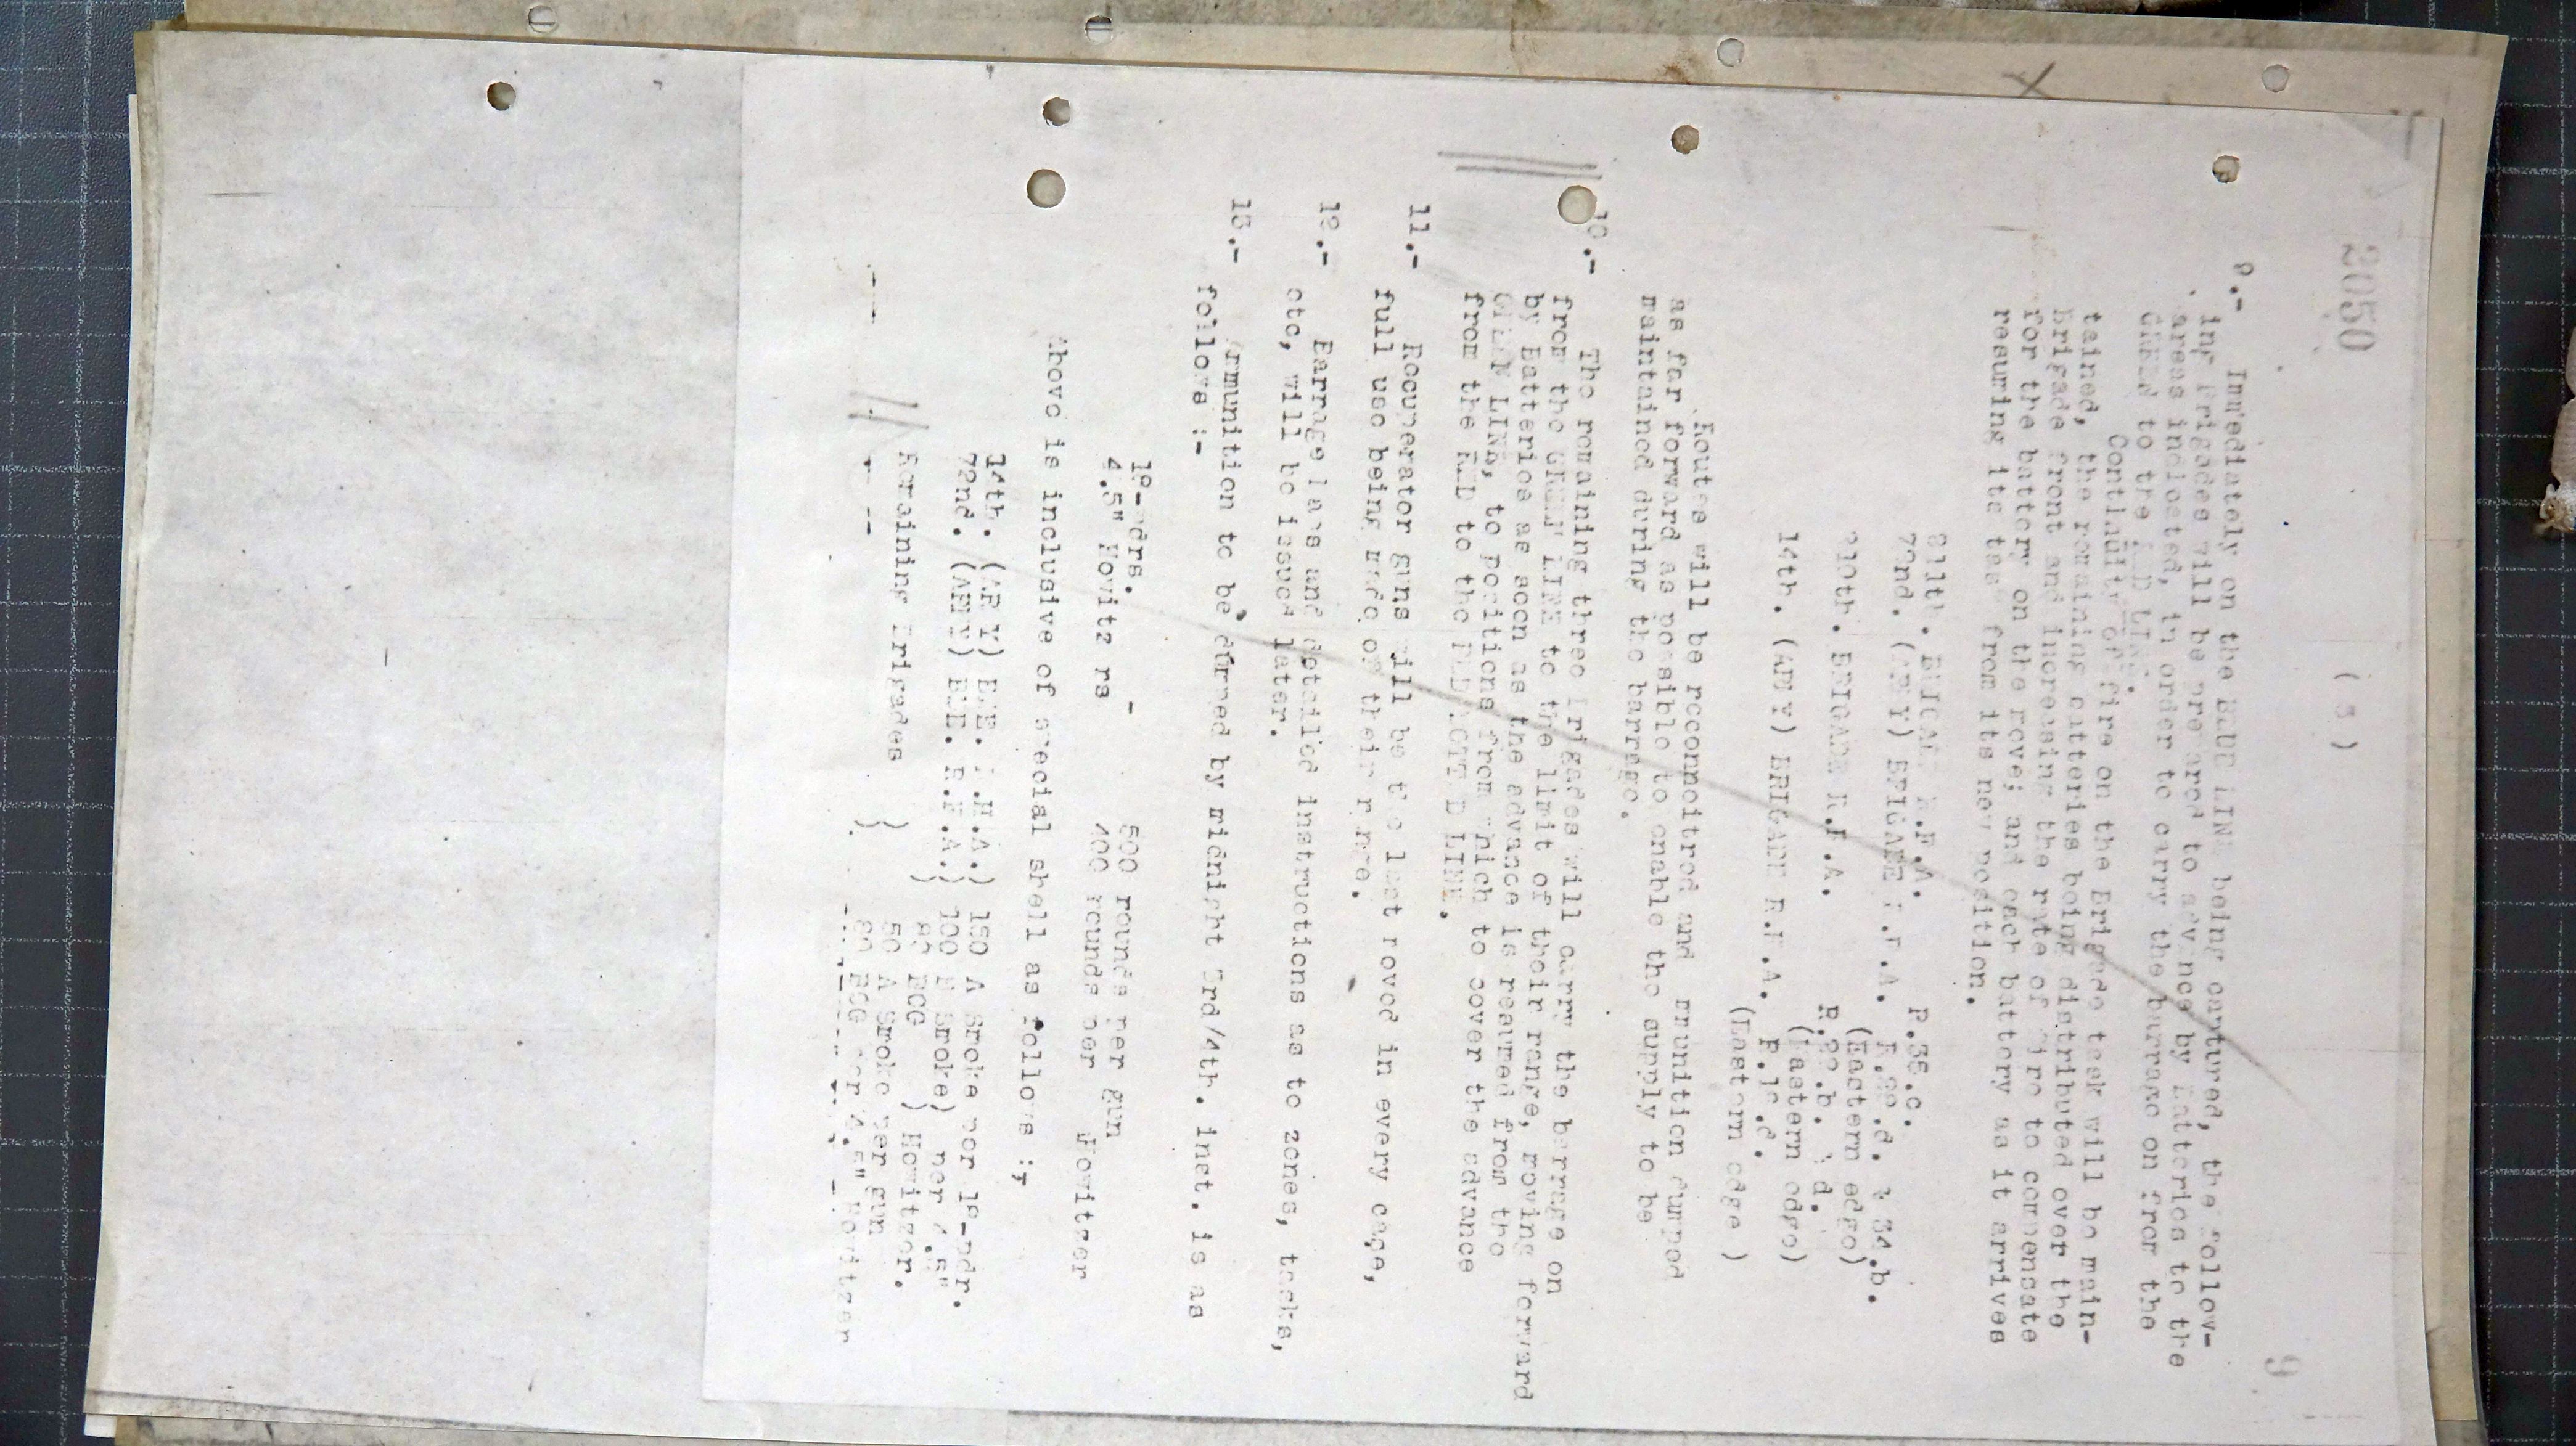 2050
( 3 )
9
9.- Immediately on the BLUE LINE being captured, the follow-
ing Brigades will be prepared to advance by Batteries to the
areas indicated, in order to carry the barrage on from the
GREEN to the RED LINE.
Continuity of fire on the Brigade task will be main-
tained, the remaining batteries being distributed over the
Brigade front and increasing the rate of fire to compensate
for the battery on the move; and each battery as it arrives
resuming its task from its new position.
211th. BRIGADE R.F.A. R.35.c.
72nd. (ARMY) BRIGADE R.F.A. .d. & 34.b.
(Eastern edge)
210th. BRIGADE R.F.A. .b. & d.
(Eastern edge)
14th. (ARMY) BRIGADE R.F.A.
(Eastern edge )
Routes will be reconnoitred and munition dumped
as far forward as possible to enable the supply to be
maintained during the barrage.
10.- The remaining three Brigades will carry the barrage on
from the GREEN LINE to the limit of their range, moving forward
by Batteries as soon as the advance is resumed from the
GREEN LINE, to positions from which to cover the advance
from the RED to the DOTTED LINE.
11.- Recuperator guns will be the last moved in every case,
full use being made of their range.
12.- Barrage maps and detailed instructions as to zones, tasks,
etc, will be issued later.
13.- Ammunition to be dumped by midnight 3rd/4th. inst. is as
follows :-
18-pdrs. - 500 rounds per gun
4.5" Howitz rs 400 rounds per Howitzer
Above is inclusive of special shell as follows :-
14th. (AR Y) BDE. R.H.A.) 150 A Smoke per 18-pdr.
72nd. (ARMY) BDE. R.F.A.) 100 Smoke) per 4.5"
) 80 BCG ) Howitzer.
Remaining Brigades ) 50 A Smoke per gun
). 80 BCG per 4.5" Howitzer